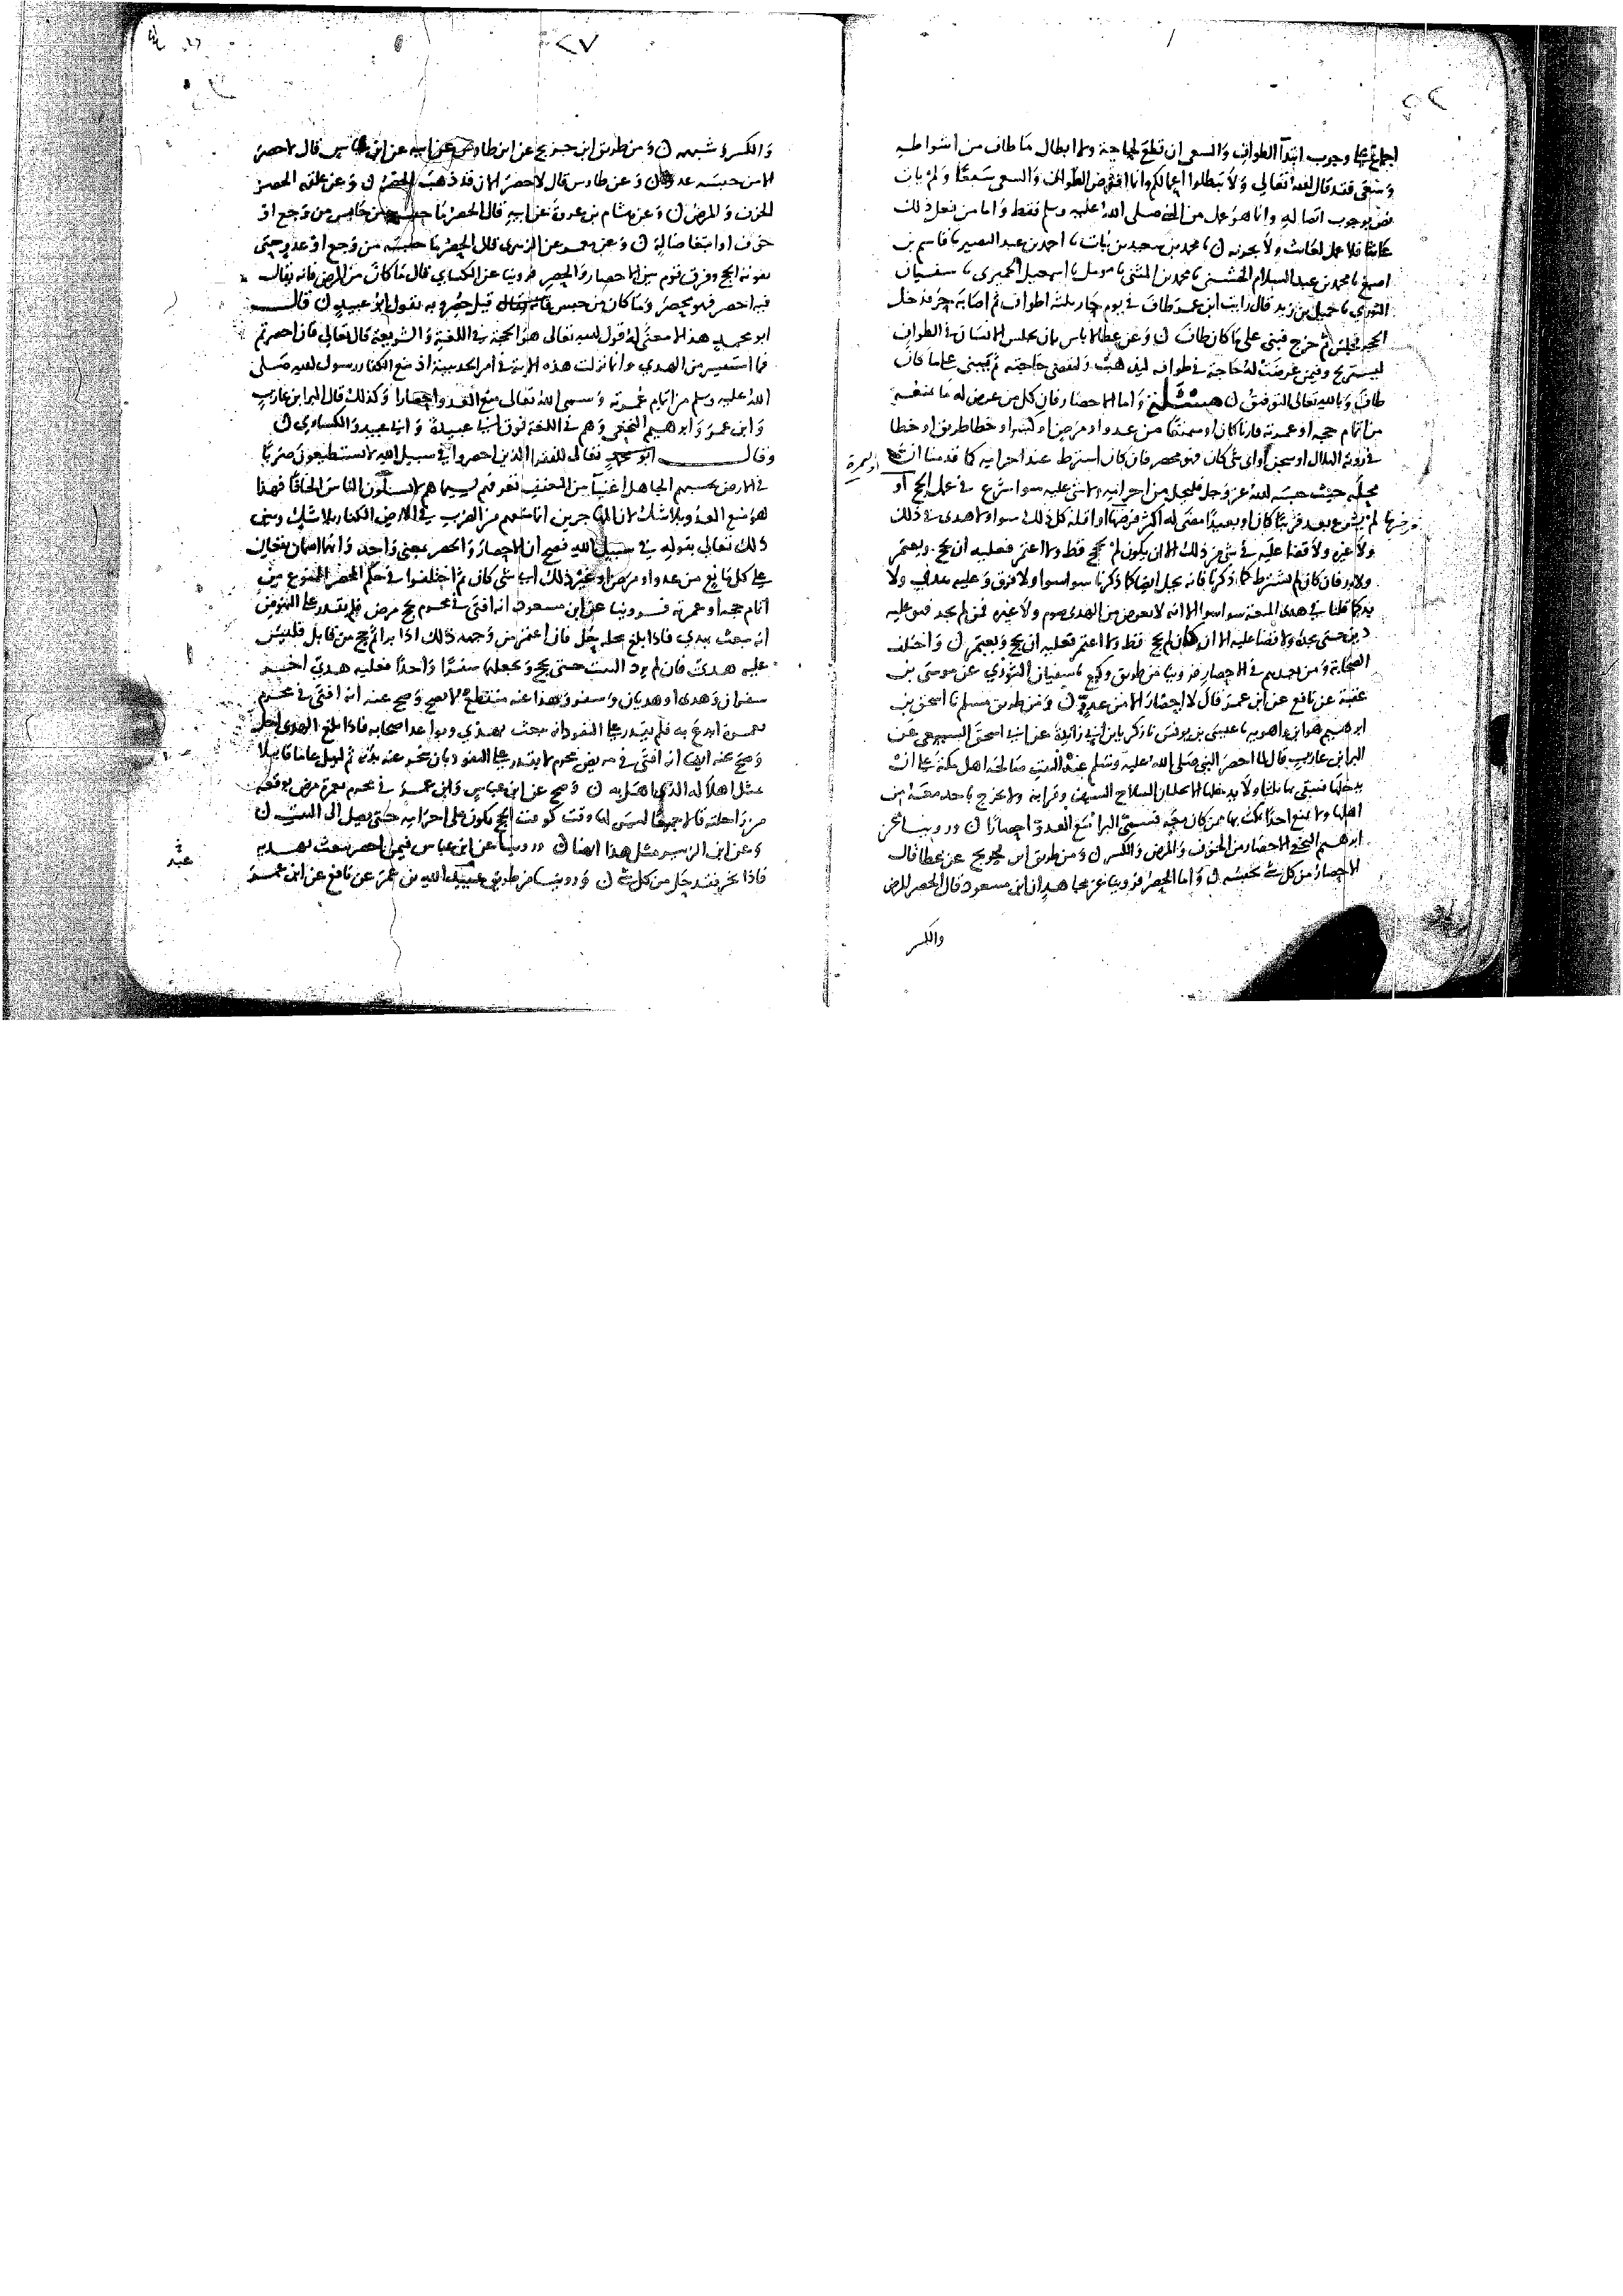 اجماع على وجوب ابتدا الطواف والسعي ان قطع لحاجة ولا ابطال ما طاف من اشواطه
وسعى فقد قال الله تعالى ولا تبطلوا اعمالكم وانما افترض الطواف والسعي سبعا ولم يات
نص بوجوب اتصاله وانما هو عمل من الخ صلى الله عليه وسلم فقط واما من فعل ذلك
عابثا فلا عمل لعابث ولا يجزيه ن نا محمد بن سعيد بن نبات نا احمد بن عبد البصير نا قاسم بن
اصبغ نا محمد بن عبد السلام الخشني نا محمد بن المثنى نا مومل بن اسمعيل الحميري نا سفيان
الثوري نا جميل بن زيد قال رايت ابن عمر طاف في يوم حار ثلثة اطواف ثم اصابه حر فدخل
الحجر فجلس ثم خرج فبنى على ما كان طاف ن وعن عطا لا باس بان يجلس الانسان في الطواف
ليستريح وفيمن عرضت له حاجة في طوافه ليذهب وليقضي حاجته ثم يبني على ما كان
طاف وبالله تعالى التوفيق ن مسئلة واما الاحصار فان كل من عرض له ما يمنعه
من اتمام حجه او عمرته قارنا كان او متمتعا من عدو او مرض او كسر او خطا طريق او خطا
في روية الهلال او سجن او اي شي كان فهو محصر فان كان اشترط عند احرامه كما قدمنا ان
او العمرة
محله حيث حبسه الله عز وجل فليحل من احرامه ولا شي عليه سوا شرع في عمل الحج او
لم يشرع بعد قريبا كان او بعيدا مضى له اكثر فرضها او اقله كل ذلك سوا ولا هدي في ذلك
ولا غيره ولا قضا عليه في شي من ذلك الا ان يكون لم يحج قط ولا اعتمر فعليه ان يحج ويعتمر
ولا بد فان كان لم يشترط كما ذكرنا فانه يحل ايضا كما ذكرنا سوا سوا ولا فرق وعليه هدي ولا
بد كما قلنا في هدي المتعة سوا سوا الا انه لا يعوض من الهدي صوم ولا غيره فمن لم يجد فهو عليه
دين حتى يجده ولا قضا عليه الا ان كان لم يحج قط ولا اعتمر فعليه ان يحج ويعتمر ن واختلف
الصحابة ومن بعدهم في الاحصار فروينا من طريق وكيع نا سفيان الثوري عن موسى بن
عقبة عن نافع عن ابن عمر قال لا احصار الا من عدو ن ومن طريق مسلم نا اسحق بن
ابرهيم هو ابن راهويه نا عيسى بن يونس نا زكريا بن ابي زائدة عن ابي اسحق السبيعي عن
البرا بن عازب قال لما احصر النبي صلى الله عليه وسلم عند البيت صالحه اهل مكة على ان
يدخلها فيبقى بها ثلثا ولا يدخلها الا بجلبان السلاح السيف وقرابه ولا يخرج باحد معه من
اهلها ولا يمنع احدا يمكث بها ممن كان معه فسمى البرا منع العدو احصارا ن وروينا عن
ابرهيم النخعي الاحصار من الخوف والمرض والكسر ن ومن طريق ابن جريج عن عطا قال
الاحصار من كل شي يحبسه ن واما الحصر فروينا عن مجاهد ان ابن مسعود قال الحصر المرض
والكسر
٢٧
والكسر وشبهه ن ومن طريق ابن جريج عن ابن طاوس عن ابيه عن ابن عباس قال لا حصر
الا من حبسه عدو ن وعن طاوس قال لا حصر الان قد ذهب الحصر ن وعن علقمة الحصر
الخوف والمرض ن وعن هشام بن عروة عن ابيه قال الحصر ما حبسه من حابس من وجع او
خوف او ابتغا ضالة ن وعن معمر عن الزهري قال الحصر ما حبسه من وجع او عدو حتى
يفوته الحج وفرق قوم بين الاحصار والحصر فروينا عن الكساي قال ما كان من المرض فانه يقال
فيه احصر فهو محصر وما كان من حبس قيل حصر وبه يقول ابو عبيد ن قال
ابو محمد هذا لا معنى له قول الله تعالى هو الحجة في اللغة والشريعة قال تعالى فان احصرتم
فما استيسر من الهدي وانما نزلت هذه الاية في امر الحديبية اذ منع الكفار رسول الله صلى
الله عليه وسلم من اتمام عمرته وسمى الله تعالى منع العدو احصارا وكذلك قال البرا بن عازب
وابن عمر وابرهيم النخعي وهم في اللغة فوق ابي عبيدة وابي عبيد والكساي ن
وقال ابو محمد تعالى للفقرا الذين احصروا في سبيل الله لا يستطيعون ضربا
في الارض يحسبهم الجاهل اغنيا من التعفف تعرفهم بسيماهم لا يسئلون الناس الحافا فهذا
هو منع العدو بلا شك لان المهاجرين انما منعهم من الضرب في الارض الكفار بلا شك وبين
ذلك تعالى بقوله في سبيل الله فصح ان الاحصار والحصر بمعنى واحد وانهما اسمان يقعان
على كل مانع من عدو او مرض او غير ذلك اي شي كان ثم اختلفوا في حكم المحصر الممنوع من
اتمام حجه او عمرته فروينا عن ابن مسعود انه افتى في محرم بحج مرض فلم يقدر على النهوض
ان يبعث بهدي فاذا بلغ محله حل فان اعتمر من وجهه ذلك اذا برا ثم حج من قابل فليس
عليه هدي فان لم يزر البيت حتى يحج ويجعلها سفرا واحدا فعليه هدي اخر
سفران وهدي او هديان وسفر وهذا عنه منقطع لا يصح وصح عنه انه افتى في محرم
بعمرة لدغ به فلم يقدر على النفوذ انه يبعث بهدي ويواعد اصحابه فاذا بلغ الهدي احل
وصح عنه ايضا انه افتى في مريض محرم لا يقدر على النفوذ بان ينحر عنه بدنة ثم ليهل عاما قابلا
بمثل اهلاله الذي اهل به ن وصح عن ابن عباس وابن عمر في محرم بعمرة مرض بوقعة
من راحلته قالا جميعا ليس لها وقت كوقت الحج يكون على احرامه حتى يصل الى البيت ن
وعن ابن الزبير مثل هذا ايضا ن وروينا عن ابن عباس فيمن احصر يبعث بهديه
فاذا نحر فقد حل من كل شي ن وروينا من طريق عبيد الله بن عمر عن نافع عن ابن عمر